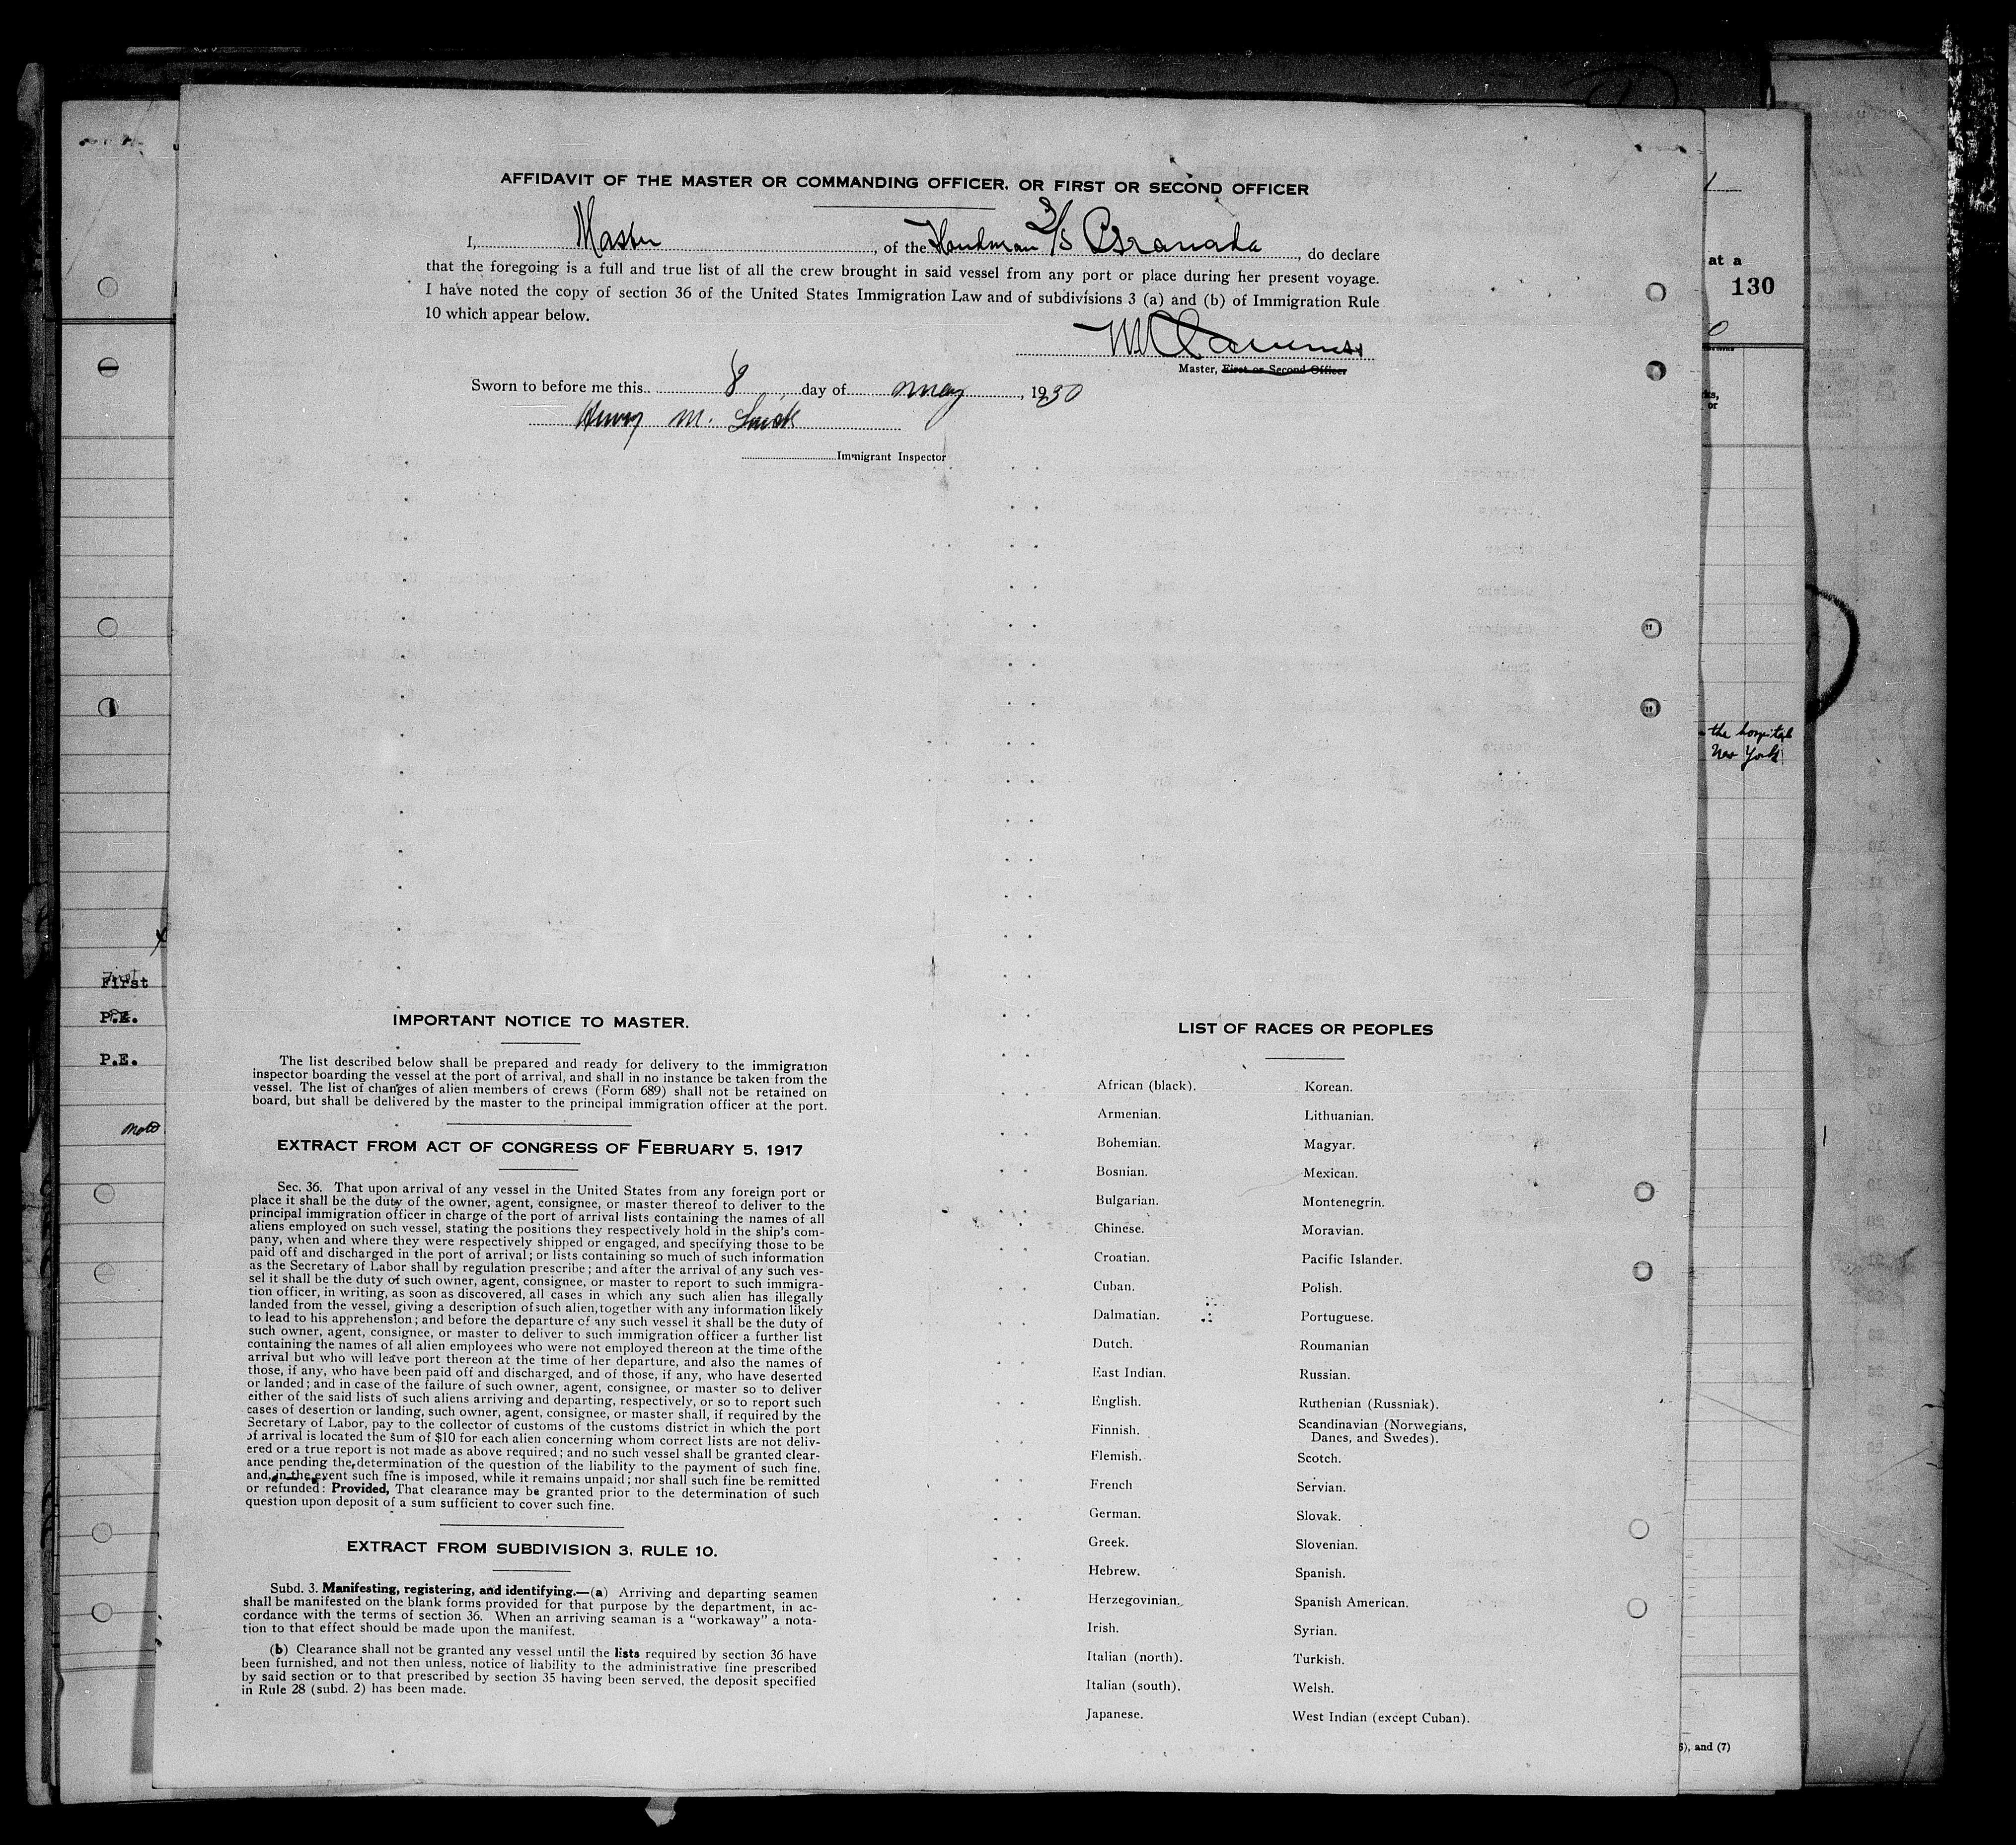 AFFIDAVIT OF THE MASTER OR COMMANDING OFFICER, OR FIRST OR SECOND OFFICER
I, Master, of the S/S Granada, do declare
that the foregoing is a full and true list of all the crew brought in said vessel from any port or place during her present voyage.
I have noted the copy of section 36 of the United States Immigration Law and of subdivisions 3 (a) and (b) of Immigration Rule
10 which appear below.
Master, First or Second Officer
Sworn to before me this 8 day of may, 1930
Henry M.
Immigrant Inspector
at a
130
the hospital
New York
First
P.E.
P.E.
IMPORTANT NOTICE TO MASTER.
The list described below shall be prepared and ready for delivery to the immigration
inspector boarding the vessel at the port of arrival, and shall in no instance be taken from the
vessel. The list of changes of alien members of crews (Form 689) shall not be retained on
board, but shall be delivered by the master to the principal immigration officer at the port.
EXTRACT FROM ACT OF CONGRESS OF FEBRUARY 5, 1917
Sec. 36. That upon arrival of any vessel in the United States from any foreign port or
place it shall be the duty of the owner, agent, consignee, or master thereof to deliver to the
principal immigration officer in charge of the port of arrival lists containing the names of all
aliens employed on such vessel, stating the positions they respectively hold in the ship's com-
pany, when and where they were respectively shipped or engaged, and specifying those to be
paid off and discharged in the port of arrival; or lists containing so much of such information
as the Secretary of Labor shall by regulation prescribe; and after the arrival of any such ves-
sel it shall be the duty of such owner, agent, consignee, or master to report to such immigra-
tion officer, in writing, as soon as discovered, all cases in which any such alien has illegally
landed from the vessel, giving a description of such alien, together with any information likely
to lead to his apprehension; and before the departure of any such vessel it shall be the duty of
such owner, agent, consignee, or master to deliver to such immigration officer a further list
containing the names of all alien employees who were not employed thereon at the time of the
arrival but who will leave port thereon at the time of her departure, and also the names of
those, if any, who have been paid off and discharged, and of those, if any, who have deserted
or landed; and in case of the failure of such owner, agent, consignee, or master so to deliver
either of the said lists of such aliens arriving and departing, respectively, or so to report such
cases of desertion or landing, such owner, agent, consignee, or master shall, if required by the
Secretary of Labor, pay to the collector of customs of the customs district in which the port
of arrival is located the sum of $10 for each alien concerning whom correct lists are not deliv-
ered or a true report is not made as above required; and no such vessel shall be granted clear-
ance pending the determination of the question of the liability to the payment of such fine,
and, in the event such fine is imposed, while it remains unpaid; nor shall such fine be remitted
or refunded: Provided, That clearance may be granted prior to the determination of such
question upon deposit of a sum sufficient to cover such fine.
EXTRACT FROM SUBDIVISION 3, RULE 10.
Subd. 3. Manifesting, registering, and identifying.—(a) Arriving and departing seamen
shall be manifested on the blank forms provided for that purpose by the department, in ac-
cordance with the terms of section 36. When an arriving seaman is a "workaway" a nota-
tion to that effect should be made upon the manifest.
(b) Clearance shall not be granted any vessel until the lists required by section 36 have
been furnished, and not then unless, notice of liability to the administrative fine prescribed
by said section or to that prescribed by section 35 having been served, the deposit specified
in Rule 28 (subd. 2) has been made.
LIST OF RACES OR PEOPLES
African (black).
Armenian.
Bohemian.
Bosnian.
Bulgarian.
Chinese.
Croatian.
Cuban.
Dalmatian.
Dutch.
East Indian.
English.
Finnish.
Flemish.
French
German.
Greek.
Hebrew.
Herzegovinian.
Irish.
Italian (north).
Italian (south).
Japanese.
Korean.
Lithuanian.
Magyar.
Mexican.
Montenegrin.
Moravian.
Pacific Islander.
Polish.
Portuguese.
Roumanian
Russian.
Ruthenian (Russniak).
Scandinavian (Norwegians,
Danes, and Swedes).
Scotch.
Servian.
Slovak.
Slovenian.
Spanish.
Spanish American.
Syrian.
Turkish.
Welsh.
West Indian (except Cuban).
6), and (7)